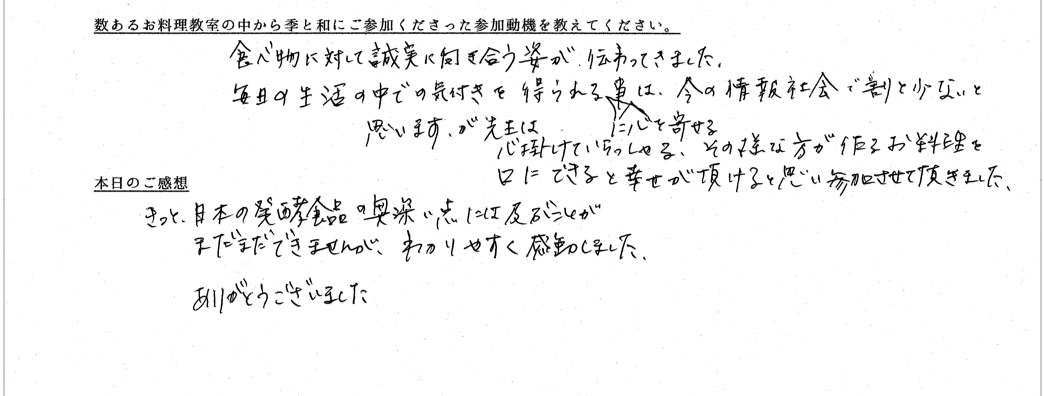 数あるお料理教室の中から季と和にご参加くださった参加動機を教えてください。
食べ物に対して誠実に向き合う姿が、伝わってきました。
毎日の生活の中での気付きを得られる事は、今の情報社会で割と少ないと
思います、が先生は に心を寄せる
心掛けていらっしゃる、その様な方が作るお料理を
口にできると幸せが頂けると思い参加させて頂きました。
本日のご感想
きっと、日本の発酵食品の奥深い点には及ぶことが
まだまだできませんが、わかりやすく感動しました。
ありがとうございました